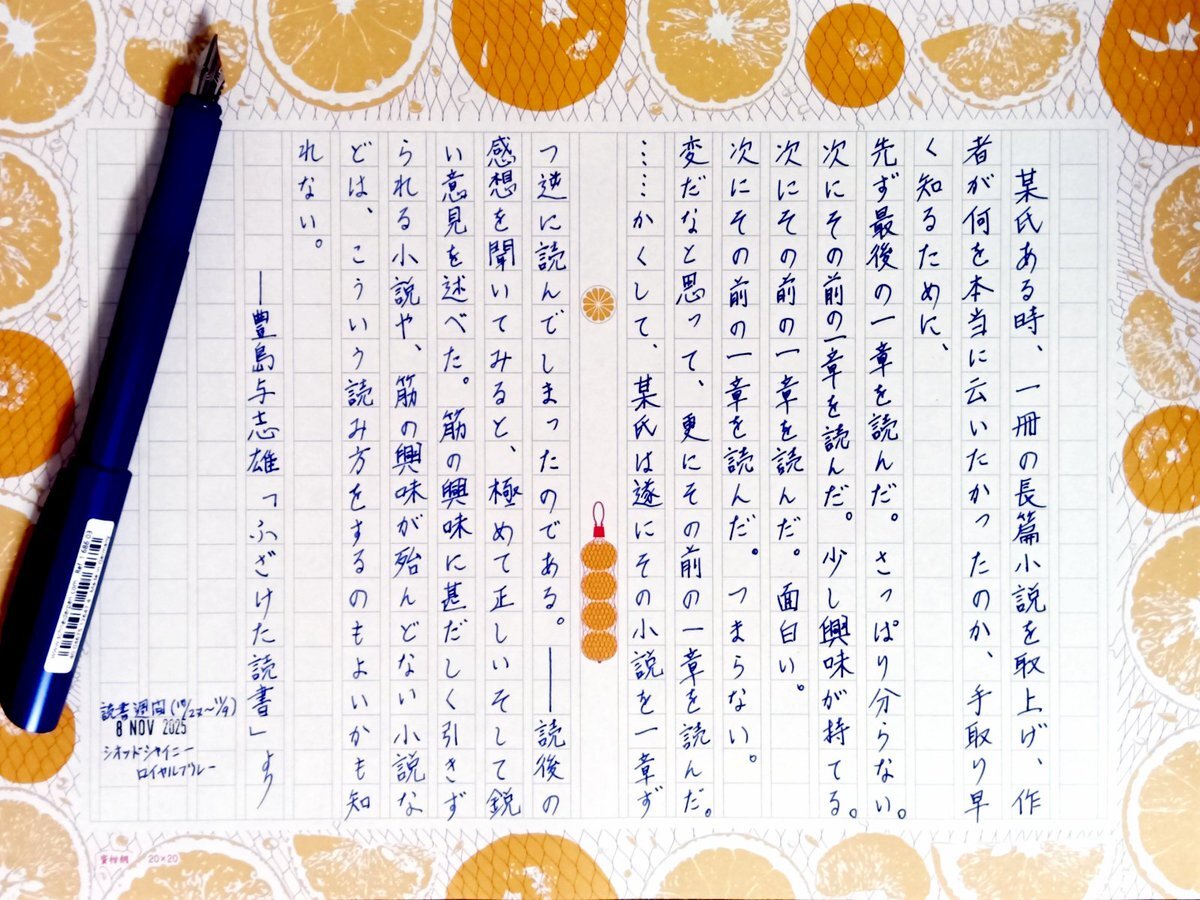 某氏ある時、一冊の長篇小説を取上げ、作
者が何を本当に云いたかったのか、手取り早
く知るために、
先ず最後の一章を読んだ。さっぱり分らない。
次にその前の一章を読んだ。少し興味が持てる。
次にその前の一章を読んだ。面白い。
次にその前の一章を読んだ。つまらない。
変だなと思って、更にその前の一章を読んだ。
……かくして、某氏は遂にその小説を一章ず
つ逆に読んでしまったのである。――読後の
感想を聞いてみると、極めて正しいそして鋭
い意見を述べた。筋の興味に甚だしく引きず
られる小説や、筋の興味が殆んどない小説な
どは、こういう読み方をするのもよいかも知
れない。
―豊島与志雄「ふざけた読書」より
読書週間(10/27~11/9)
8 NOV 2025
シオッドシャイニー
ロイヤルブルー
蜜柑網 20×20